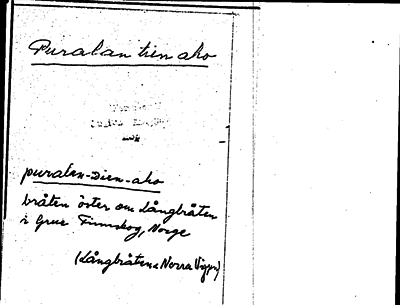 Puralan tien aho
puralan-dien-aho
bråten öster om Långbråten
i Grue Finnskog, Norge
(Långbråten, Norra Viggen)